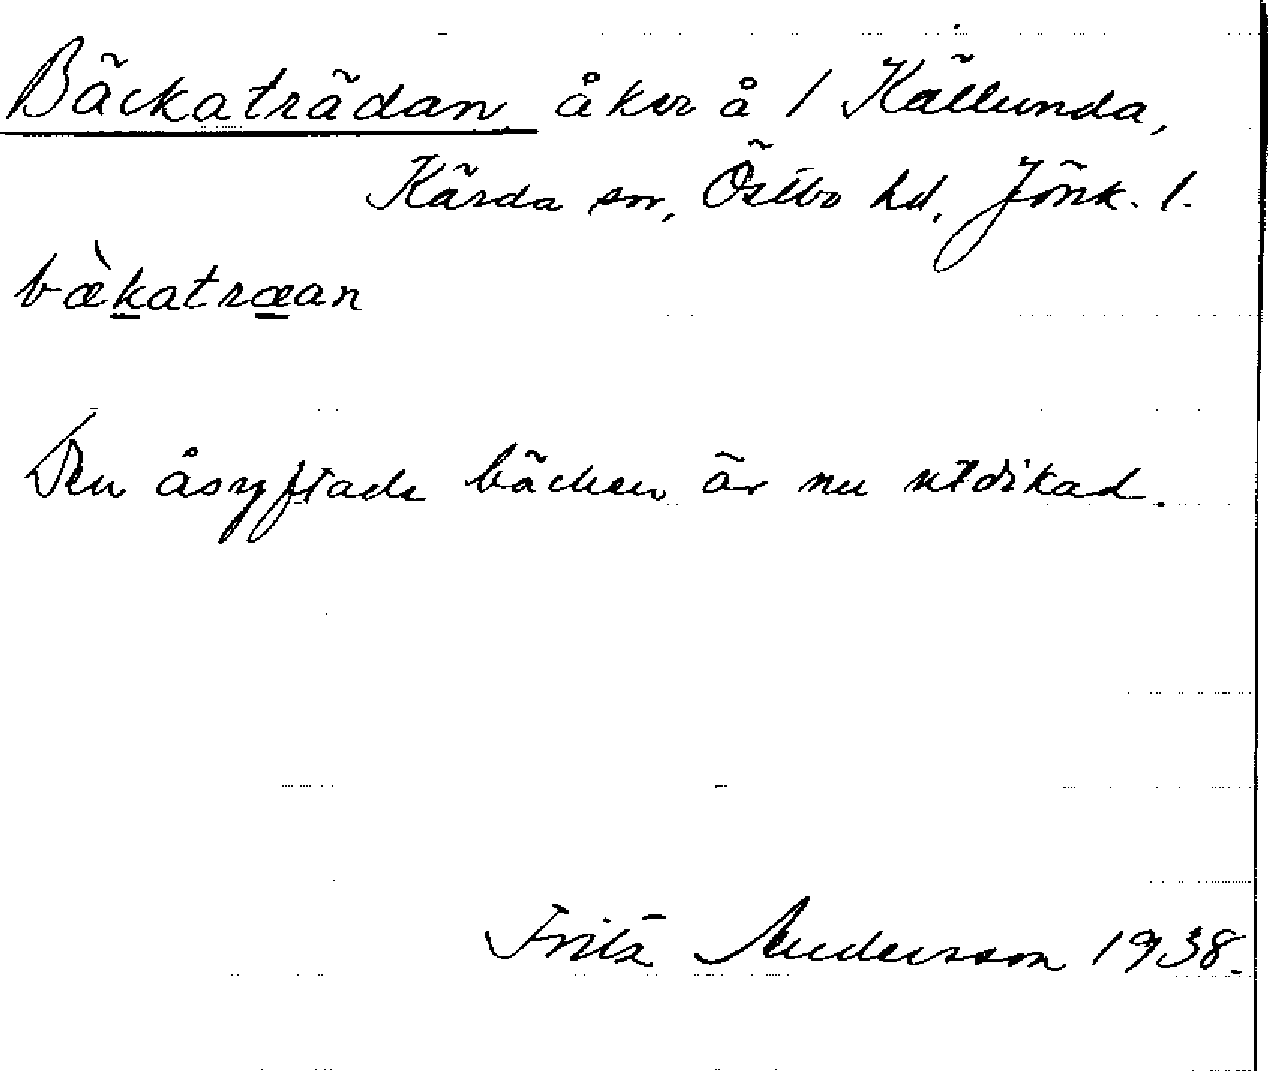 Bäckaträdan, åker å 1 Källunda,
Kärda sn, Östbo hd, Jönk. l.
bæ̀katræan
Den åsyftade bäcken är nu utdikad.
Fritz Andersson 1938.